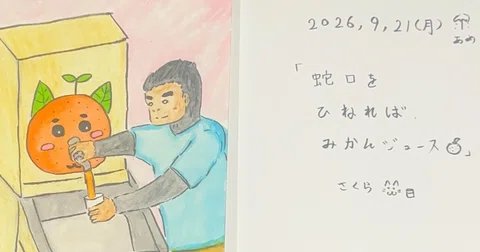 2026,9,21(月)
あめ
「蛇口を
ひねれば
みかんジュース」
さくら